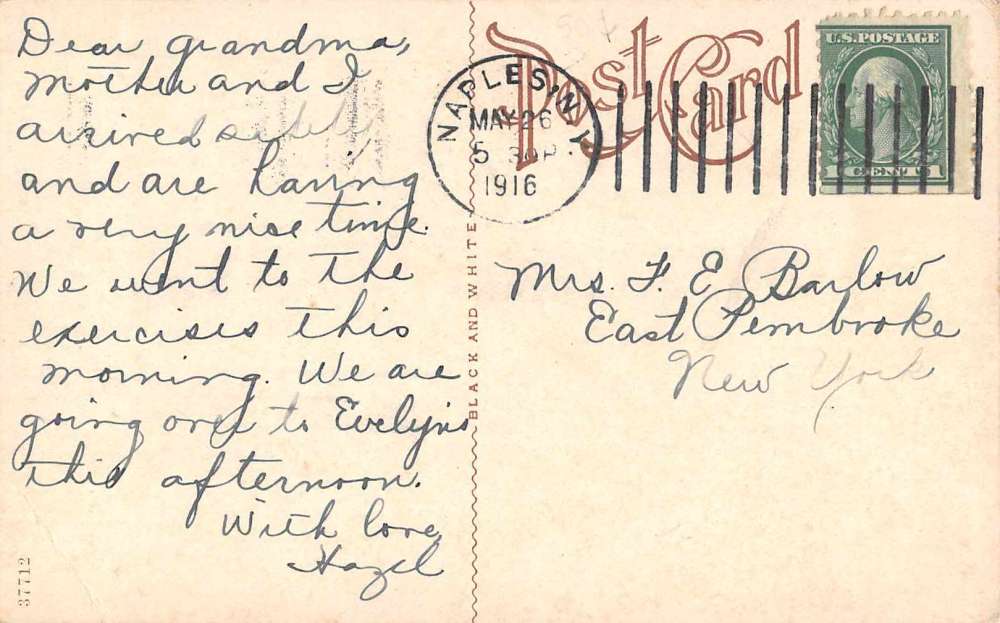 Dear grandma,
Mother and I
arrived safely
and are having
a very nice time.
We went to the
exercises this
morning. We are
going over to Evelyn's
this afternoon.
With love,
Hazel
37712
BLACK AND WHITE
Post Card
NAPLES, N.Y.
MAY 26
5 30 P.
1916
U.S. POSTAGE
Mrs. F. E. Barlow
East Pembroke
New York